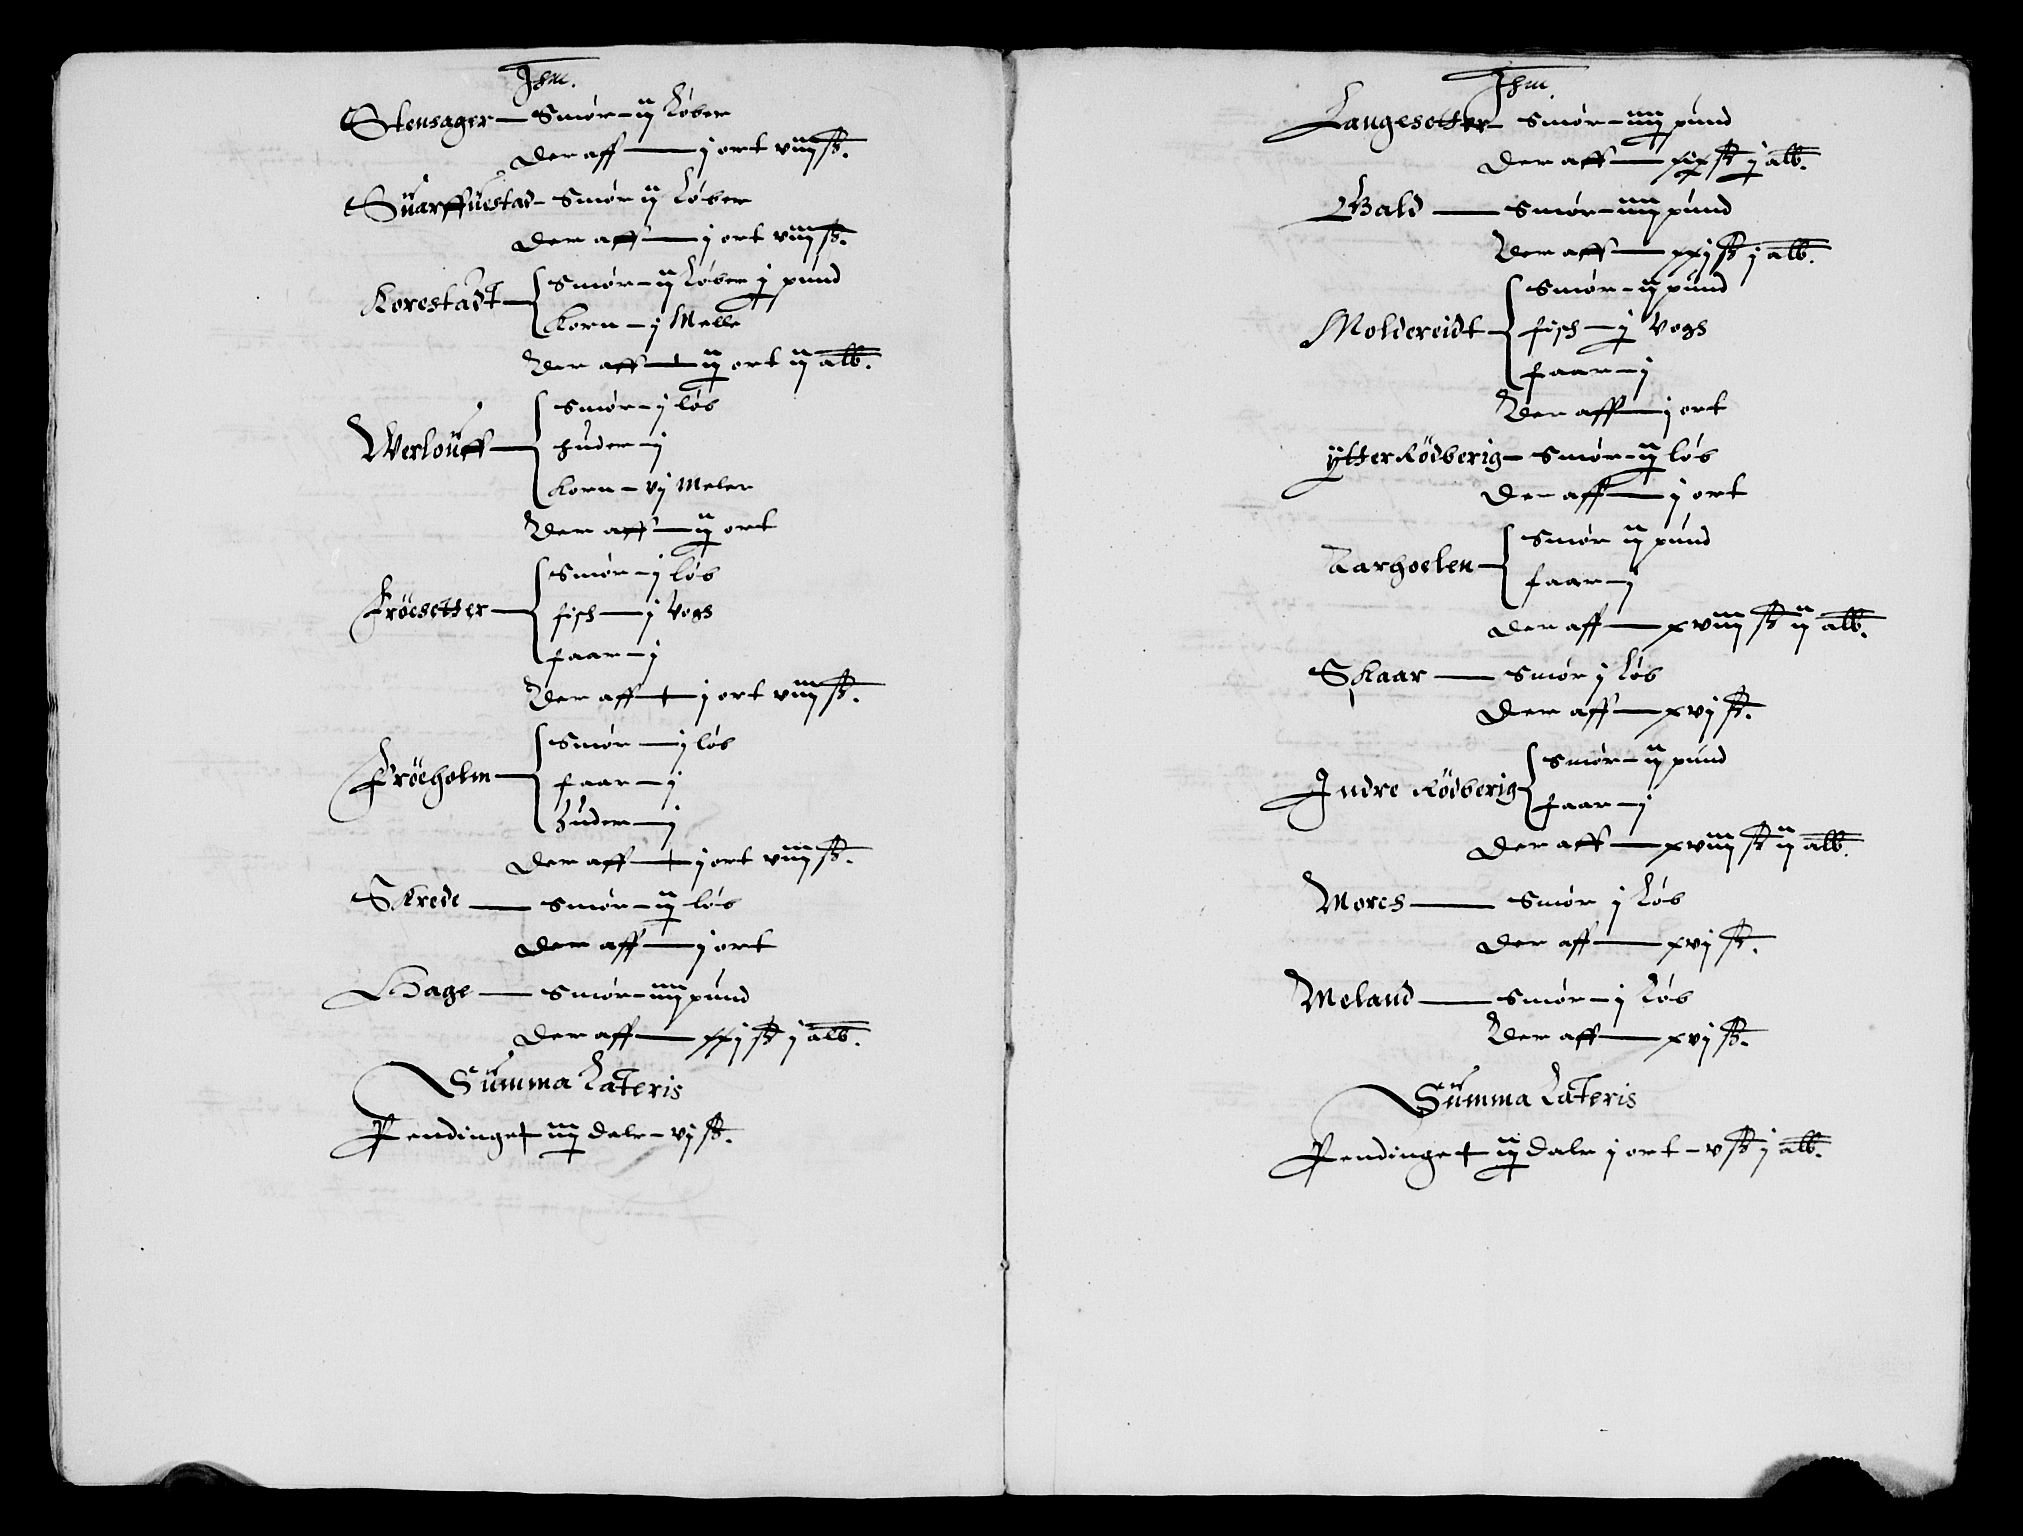 Jhm.
Stensager — Smør – ij Løber
Der aff — j ort viij ß.
Suarffuestad – Smør ij Løber
Der aff — j ort viij ß.
Korestadt — Smør – ij Løber j pund
Korn – j Melle
Der aff — ij ort ij alb.
Werlouff — Smør – j løb
Huder – j
Korn – vj Meler
Der aff — ij ort
Frøesetter — Smør – j løb
fisch — j Vogh
faar – j
Der aff — j ort viij ß.
Frøeholm — Smør — j løb
faar – j
Huder – j
Der aff — j ort viij ß.
Skrede — Smør – ij løb
Der aff — j ort
Hage — Smør – iiij pund
Der aff — xxj ß j alb.
Summa Lateris
Pendinge iiij daler – vj ß.
Jhm.
Langesetter – Smør – iiij pund
Der aff — xix ß j alb.
Bald — Smør – iiij pund
Der aff — xxj ß j alb.
Moldereidt — Smør – ij pund
fisch – j Vogh
faar – j
Der aff — j ort
ytter Rödberig – Smør – ij løb
Der aff — j ort
Aarhoelen — Smør ij pund
faar – j
Der aff — xviij ß ij alb.
Skaar — Smør j Løb
Der aff — xvj ß.
Indre Rödberig Smør – ij pund
faar – j
Der aff — xviij ß ij alb.
Morch — Smør j Løb
Der aff — xvj ß.
Meland — Smør – j Løb
Der aff — xvj ß.
Summa Lateris
Pendinge ij daler j ort – v ß j alb.